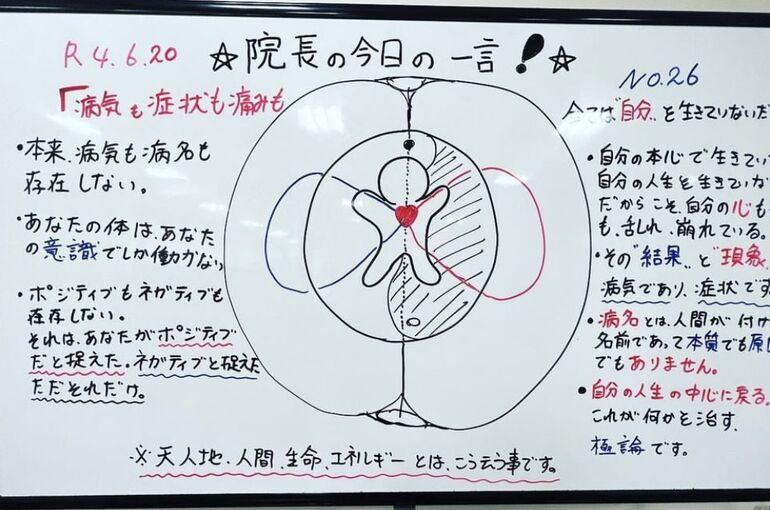 R4.6.20
☆院長の今日の一言!☆
NO.26
「病気も症状も痛みも
全ては"自分"を生きていないだ
・本来、病気も病名も
存在しない。
・あなたの体は、あなた
の意識でしか働かない
・ポジティブもネガティブも
存在しない。
それは、あなたがポジティブ
だと捉えた。ネガティブと捉えた
ただそれだけ。
・自分の本心で生きてい
自分の人生を生きていな
だからこそ、自分の心も
も、乱れ、崩れている。
・その"結果"と"現象
病気であり、症状です
・病名とは、人間が付け
名前であって本質でも原
でもありません。
・自分の人生の中心に戻る。
これが何かを治す、
極論です。
※天人地、人間、生命、エネルギーとは、こう云う事です。